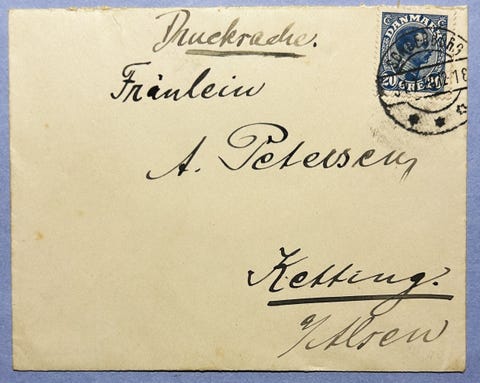 Drucksache.
DANMARK
20 ØRE
Fräulein
A. Petersen
Ketting.
a/Alsen